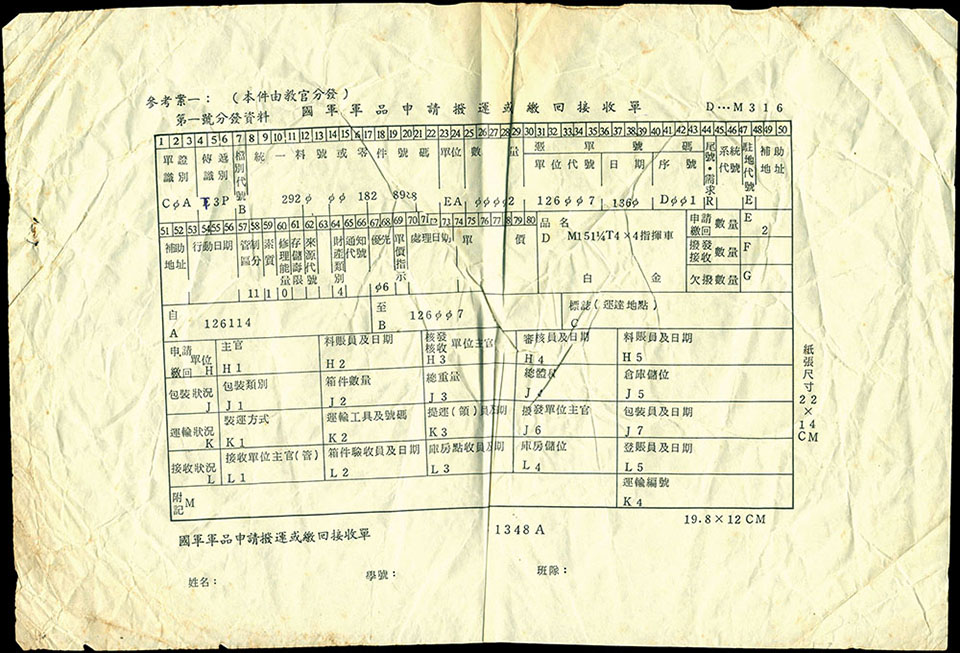 參考業一： (本件由教官分發)
國軍軍品申請撥運或繳回接收單 D…M316
第一號分發資料
1 2 3 4 5 6 7 8 9 10 11 12 13 14 15 16 17 18 19 20 21 22 23 24 25 26 27 28 29 30 31 32 33 34 35 36 37 38 39 40 41 42 43 44 45 46 47 48 49 50
單證識別 傳遞識別 檔別代號 統一料號或零件號碼 單位 數量 憑單號碼 尾號·需求 系統代號 駐地代號 補助地址
單位代號 日期 序號
CφA 3P B 292φ φφ 182 EA φφφφ2 126φφ7 136φ Dφφ1 R E
51 52 53 54 55 56 57 58 59 60 61 62 63 64 65 66 67 68 69 70 71 72 73 74 75 76 77 78 79 80
補助地址 行動日期 管區 制分 素質 修理能量 存儲壽限 來源代號 財產類別 通知代號 優先 單價指示 處理日期 單價
11 1 0 4 φ6
品名
D M151¼T4×4指揮車
白金
申請繳回 數量 E 2
撥發接收 數量 F
欠撥數量 G
自 A 126114
至 B 126φφ7
標誌(運達地點) C
申請繳回 單位 H 主官 H1 料賬員及日期 H2 核發核收 單位主官 H3 審核員及日期 H4 料賬員及日期 H5
包裝狀況 J 包裝類別 J1 箱件數量 J2 總重量 J3 總體積 J4 倉庫儲位 J5
運輸狀況 K 裝運方式 K1 運輸工具及號碼 K2 提運(領)員及日期 K3 撥發單位主官 J6 包裝員及日期 J7
接收狀況 L 接收單位主官(管) L1 箱件驗收員及日期 L2 庫房點收員及日期 L3 庫房儲位 L4 登賬員及日期 L5
附記 M 運輸編號 K4
紙張尺寸22×14CM
19.8×12CM
國軍軍品申請撥運或繳回接收單 1348A
姓名： 學號： 班隊：